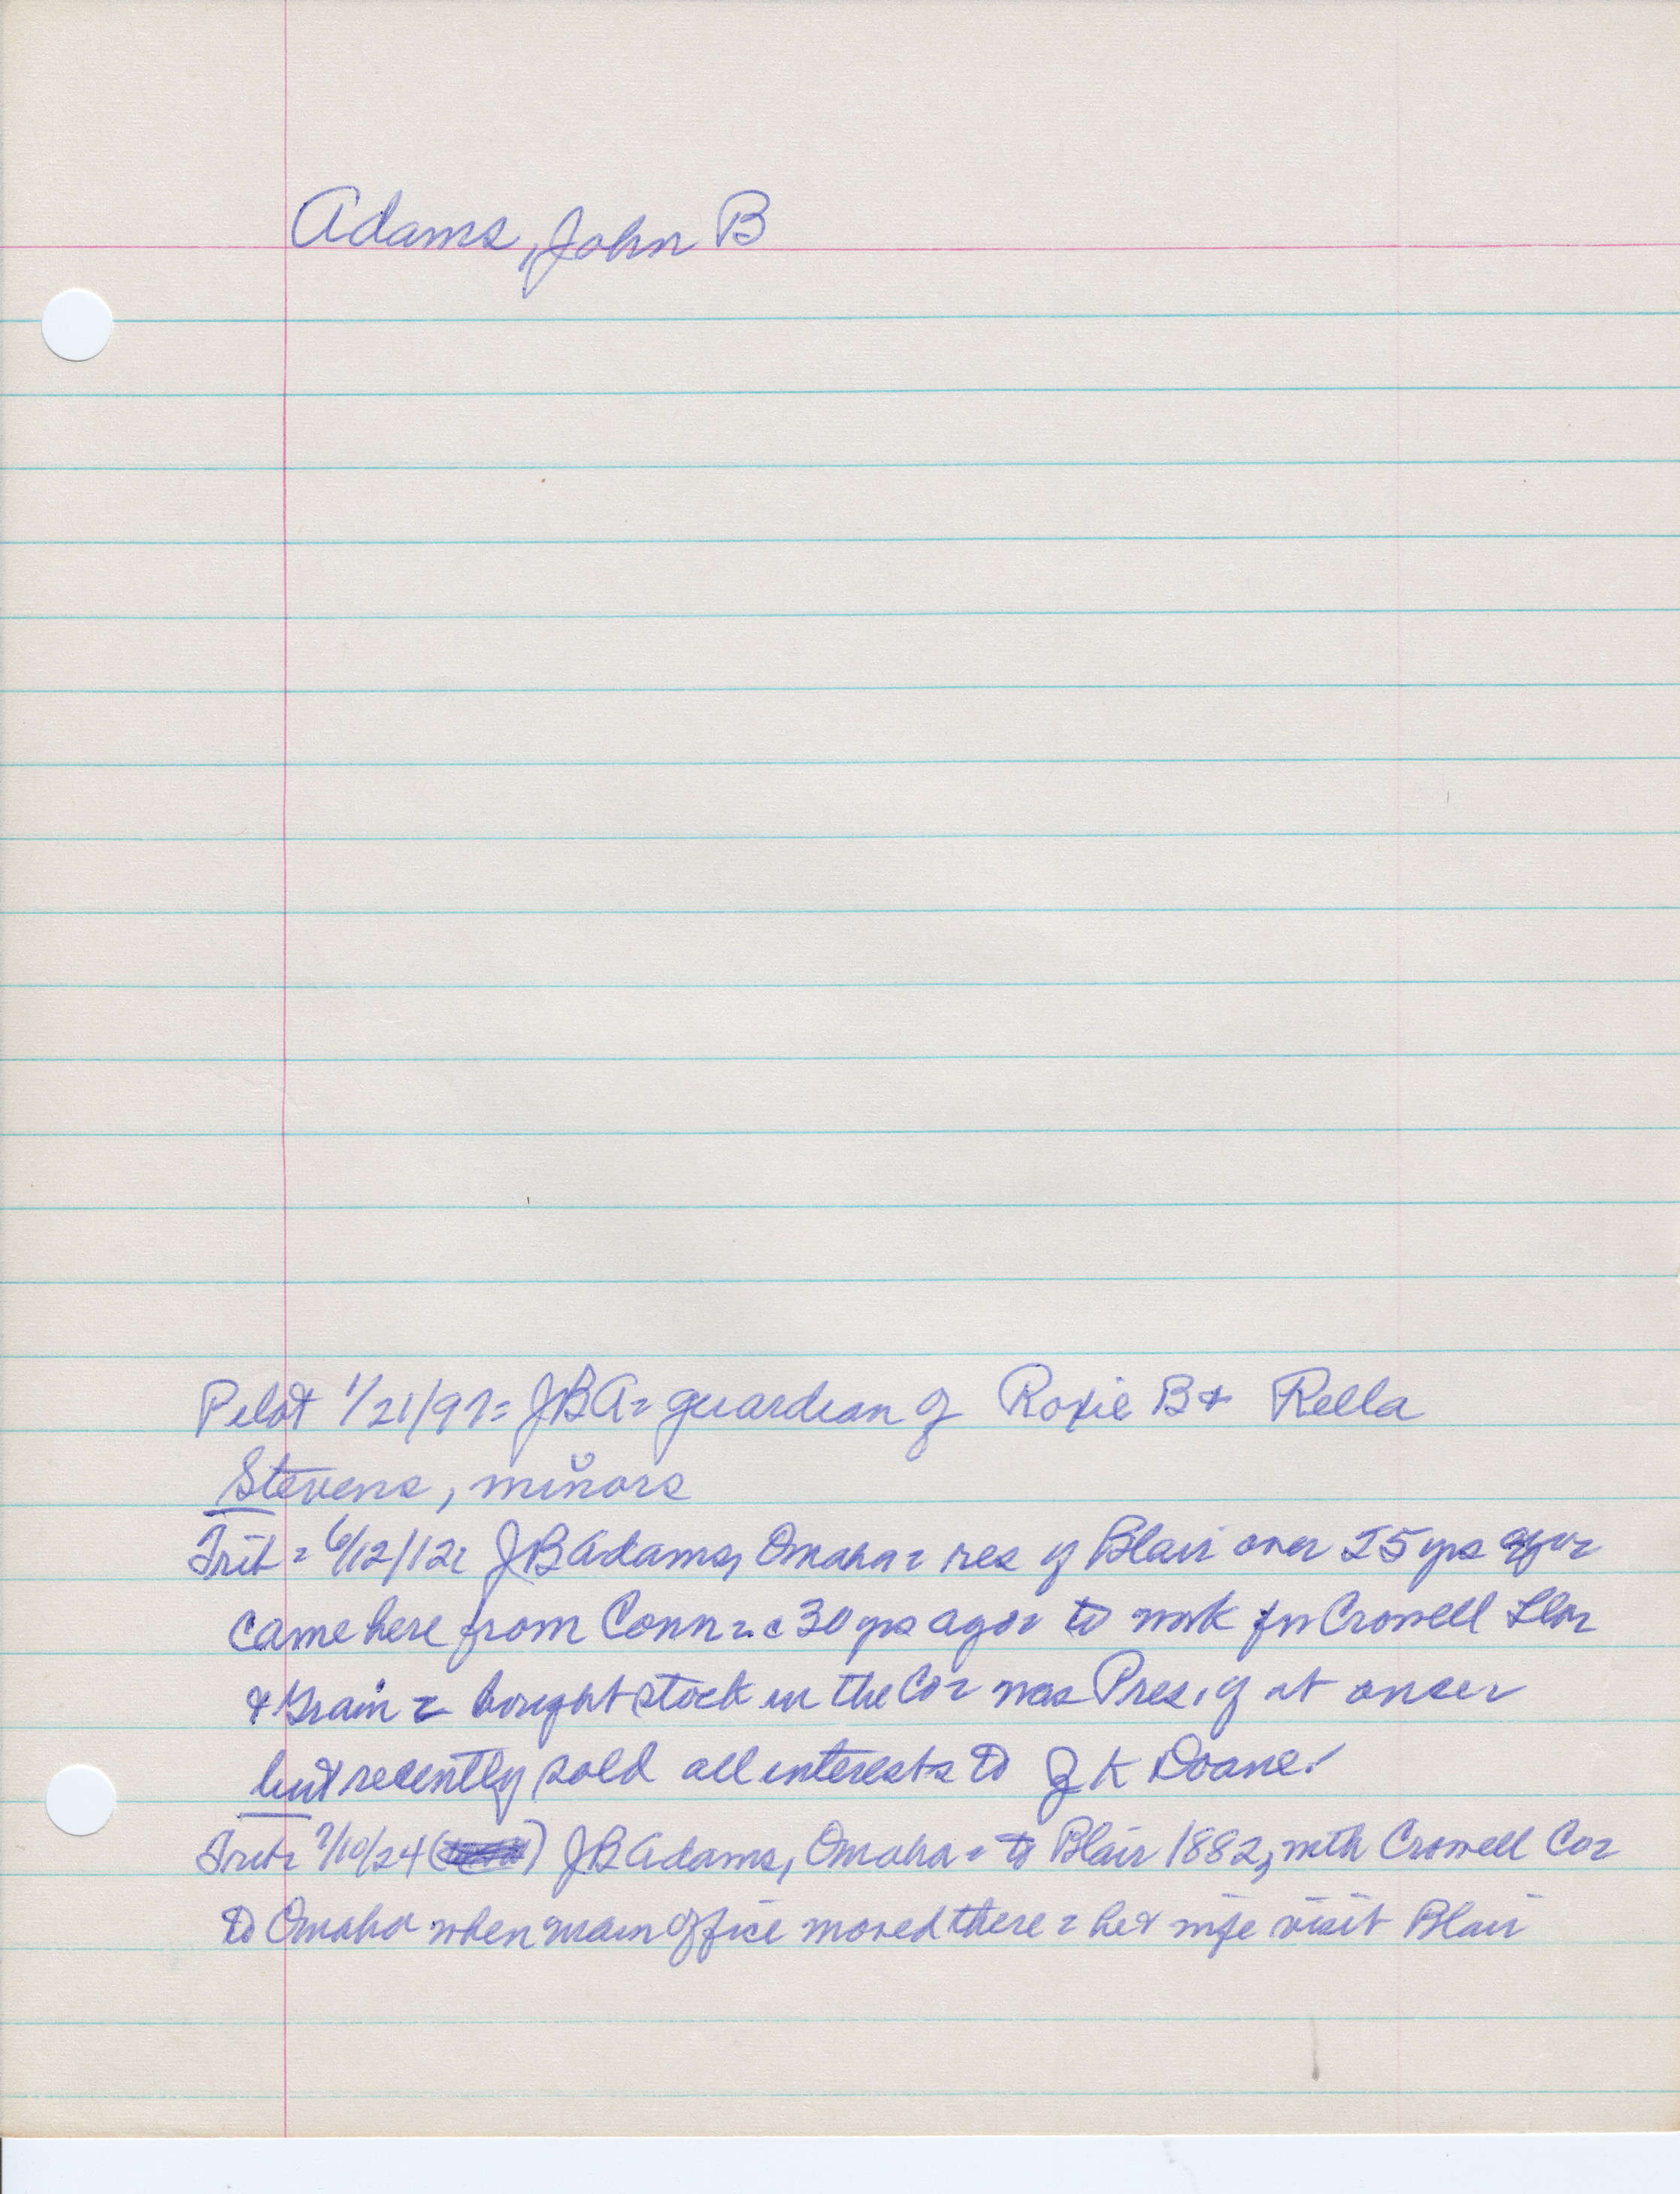 Adams, John B
Pilot 1/21/97= JBA= guardian of Roxie B & Rella
Stevens, minors
Trib= 6/12/12= JB Adams, Omaha= res of Blair over 25 yrs
came here from Conn= c 30 yrs ago= to work for Crowell
& Grain= bought stock in the Co= was Pres. of it once=
but recently sold all interests to J K Doane.
Trib= 7/10/24 ( ) JB Adams, Omaha= to Blair 1882, with Crowell Co=
to Omaha when main office moved there= he & wife visit Blair